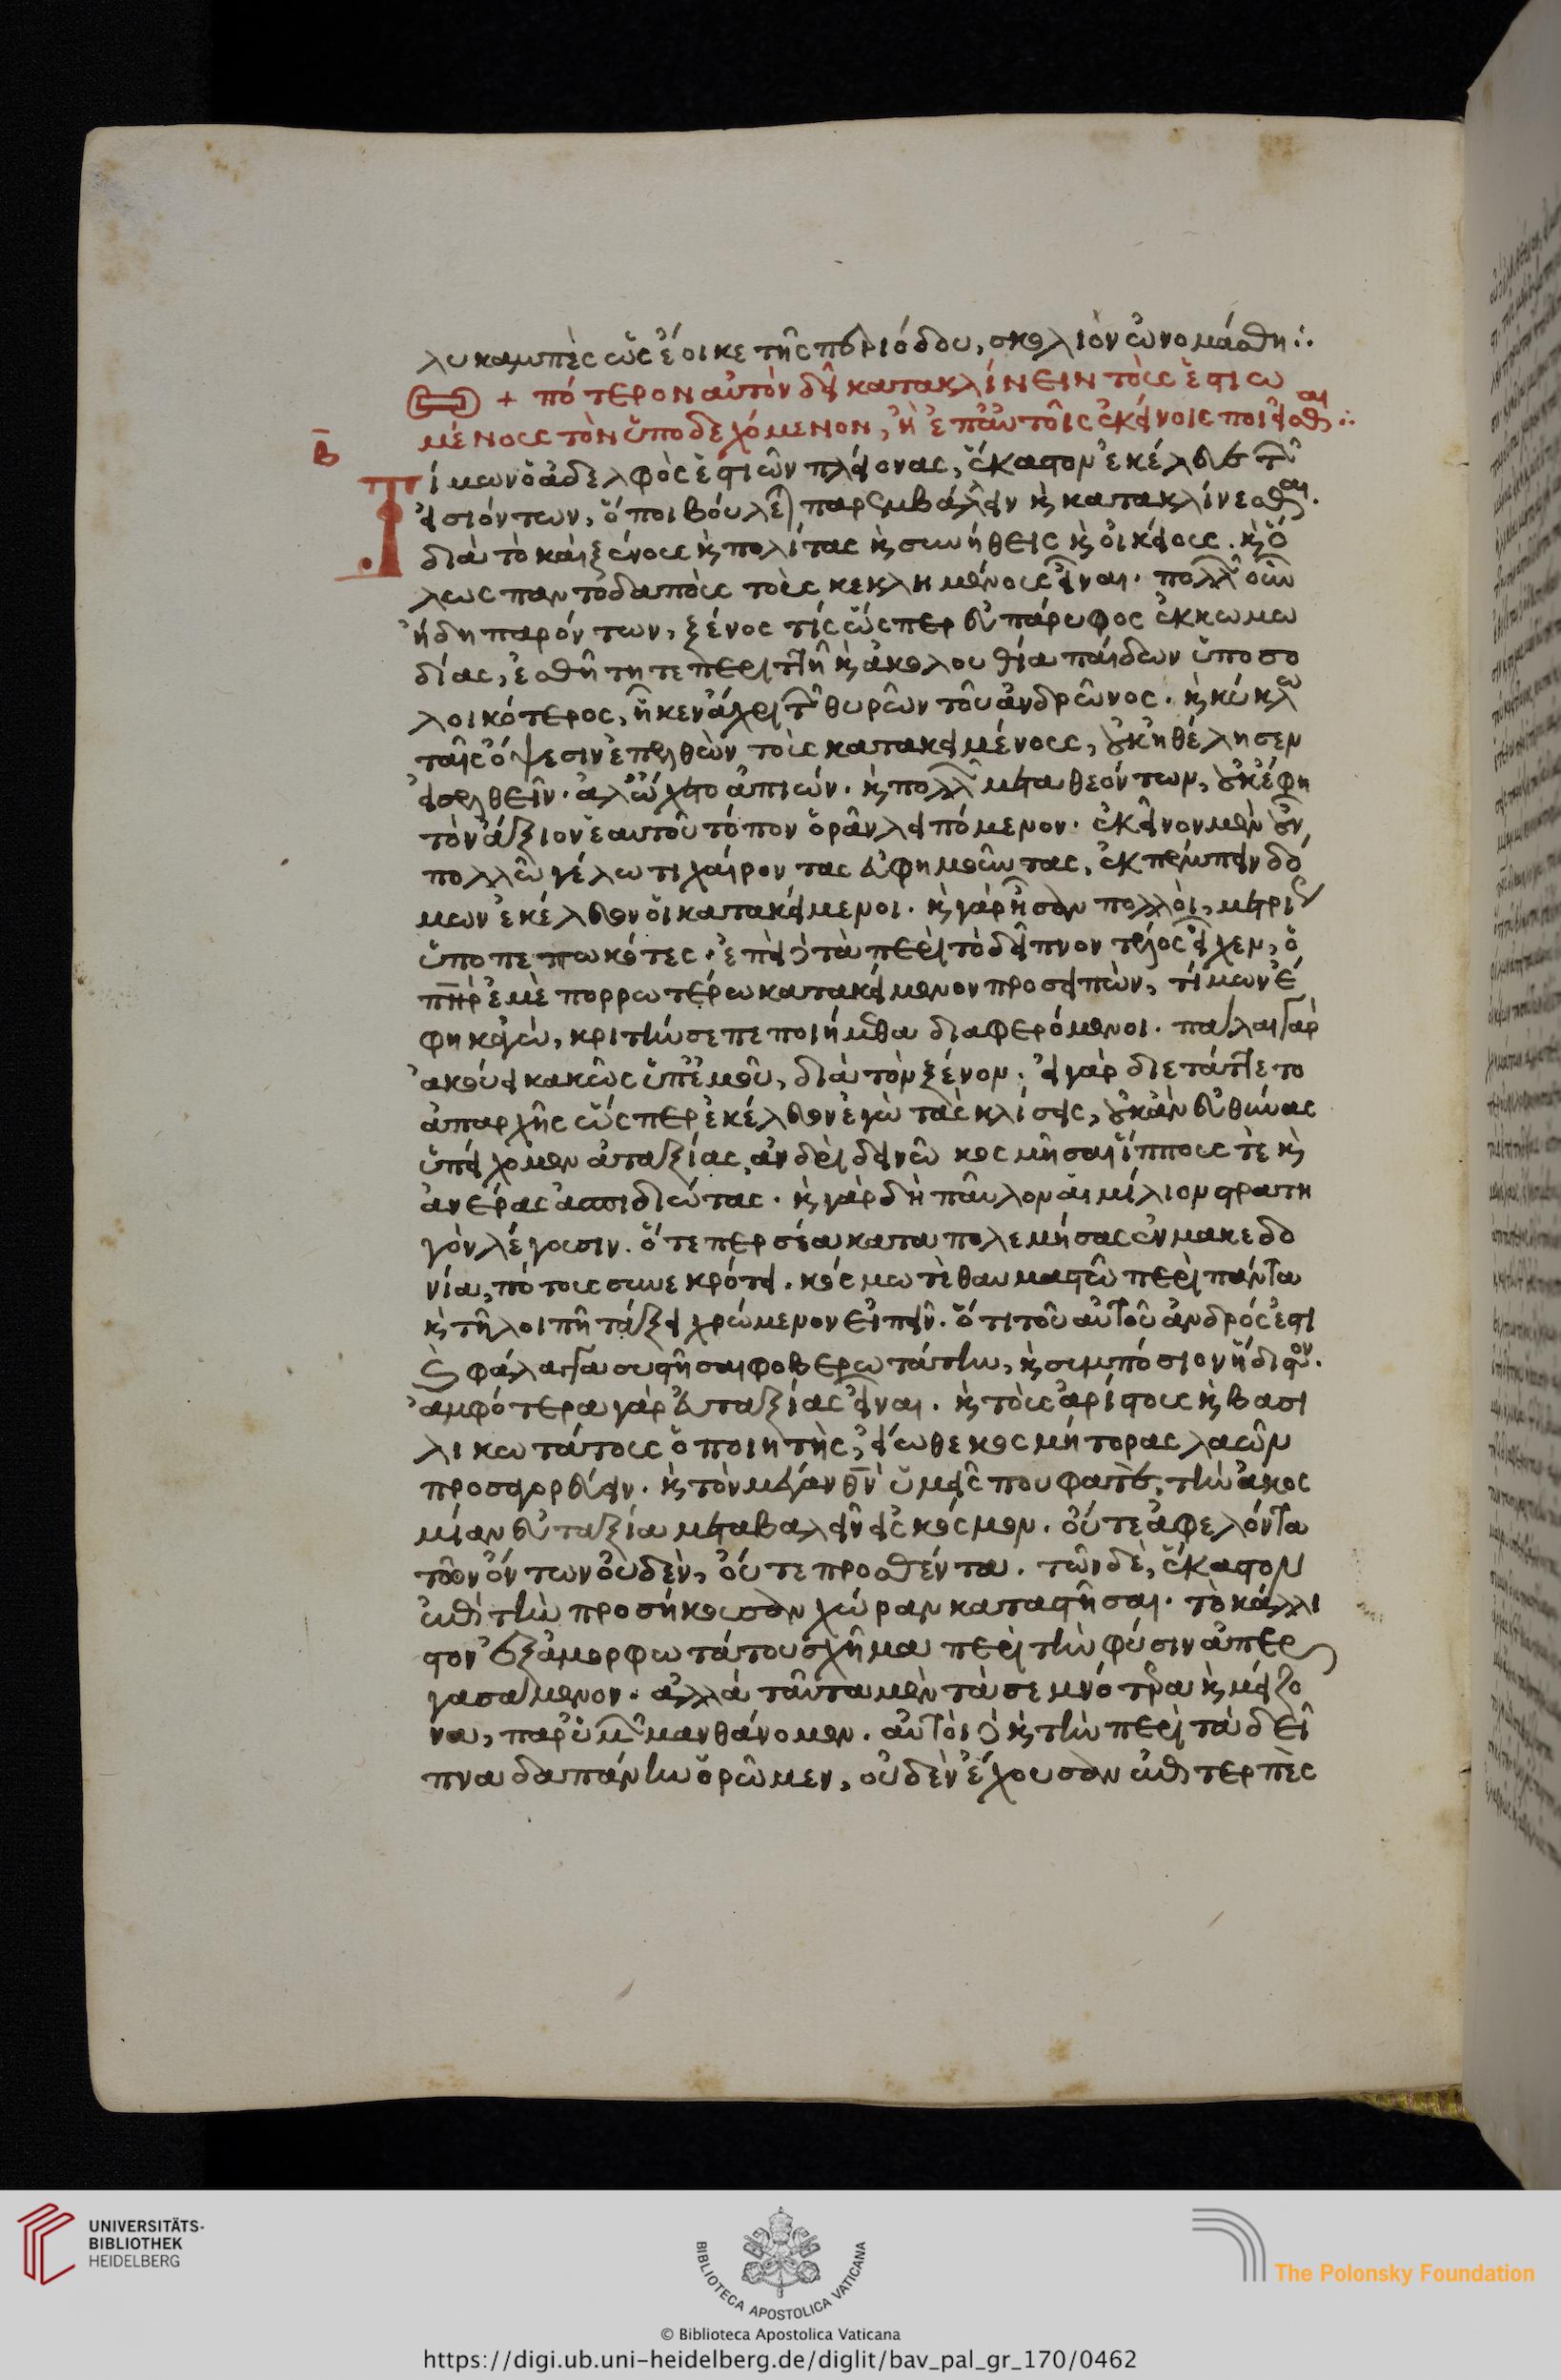 λυκαμπὲς ὡς ἔοικε τῆς περιόδου, σκολιὸν ὠνομάσθη ⁖
+ πότερον αὐτὸν δεῖ κατακλίνειν τοὺς ἑστιω
μένους τὸν ὑποδεχόμενον, ἢ ἐπ' αὐτοῖς ἐκείνοις ποιεῖσθαι ⁖
β̄
Τίμων ὁ ἀδελφὸς ἑστιῶν πλείονας, ἕκαστον ἐκέλευε τῶν
εἰσιόντων, ὅποι βούλεται παρεμβάλλειν κ̀ κατακλίνεσθαι.
διὰ τὸ καὶ ξένους κ̀ πολίτας κ̀ συνήθεις κ̀ οἰκείους. κ̀ ὅ
λως παντοδαποὺς τοὺς κεκλημένους εἶναι. πολλῶν οὖν
ἤδη παρόντων, ξένος τίς ὥσπερ εὐπάρυφος ἐκ κωμω
δίας, ἐσθῆτι τε περιττῆ κ̀ ἀκολουθία παίδων ὑποσο
λοικότερος, ἧκεν ἄχρι τῶν θυρῶν τοῦ ἀνδρῶνος. κ̀ κύκλω
ταῖς ὄψεσιν ἐπελθὼν τοὺς κατακειμένους, οὐκ ἠθέλησεν
εἰσελθεῖν. ἀλλ' ὤχετο ἀπιών. κ̀ πολλῶν μεταθεόντων, οὐκ ἔφη
τὸν ἄξιον ἑαυτοῦ τόπον ὁρᾶν λειπόμενον. ἐκεῖνον μὲν οὖν
πολλῶ γέλωτι χαίροντας εὐφημοῦντας, ἐκπέμπειν δό
μων ἐκέλευον οἱ κατακείμενοι. κ̀ γὰρ ἦσαν πολλοὶ, μετρίως
ὑποπεπωκότες. ἐπεὶ δὲ τὰ περὶ τὸ δεῖπνον τέλος εἶχεν, ὁ
πὴρ ἐμὲ πορρωτέρω κατακείμενον προσειπὼν, τίμων ἔ
φη κἀγὼ, κριτήν σε πεποιήμεθα διαφερόμενοι. πάλαι γὰρ
ἀκούει κακῶς ὑπ' ἐμοῦ, διὰ τὸν ξένον. εἰ γὰρ διετάττετο
ἀπαρχῆς ὥσπερ ἐκέλευον ἐγὼ τὰς κλίσεις, οὐκ ἂν εὐθύνας
ὑπείχομεν ἀταξίας ἀνδρὶ δεινῶ κοσμῆσαι ἵππους τὲ κ̀
ἀνέρας ἀσπιδιώτας. κ̀ γὰρ δὴ παῦλον αἰμίλιον στρατη
γὸν λέγουσιν. ὅτε περσέα καταπολεμήσας ἐν μακεδο
νία, πότους συνεκρότει. κόσμω τὲ θαυμαστῶ περὶ πάντα
κ̀ τῆ λοιπῆ τάξει χρώμενον εἰπεῖν. ὅτι τοῦ αὐτοῦ ἀνδρός ἐστι
κ̀ φάλαγγα συστῆσαι φοβερωτάτην, κ̀ συμπόσιον ἥδιστον.
ἀμφότερα γὰρ εὐταξίας εἶναι. κ̀ τοὺς ἀρίστους κ̀ βασι
λικωτάτους ὁ ποιητὴς, εἴωθε κοσμήτορας λαῶν
προσαγορεύειν. κ̀ τὸν μέγαν θ̅ν̅ ὑμεῖς που φατὲ, τὴν ἀκοσ
μίαν εὐταξία μεταβαλεῖν εἰς κόσμον. οὔτε ἀφελόντα
τῶν ὄντων οὐδὲν, οὔτε προσθέντα. τῶν δὲ, ἕκαστον
ἐπὶ τὴν προσήκουσαν χώραν καταστῆσαι. τὸ κάλλι
στον ἐξ ἀμορφωτάτου σχῆμα περὶ τὴν φύσιν ἀπερ
γασάμενον. ἀλλὰ ταῦτα μὲν τὰ σεμνότερα κ̀ μείζο
να, παρ' ὑμῶν μανθάνομεν. αὐτοὶ δὲ κ̀ τὴν περὶ τὰ δεῖ
πνα δαπάνην ὁρῶμεν, οὐδὲν ἔχουσαν ἐπιτερπὲς
UNIVERSITÄTS-
BIBLIOTHEK
HEIDELBERG
BIBLIOTECA APOSTOLICA VATICANA
The Polonsky Foundation
© Biblioteca Apostolica Vaticana
https://digi.ub.uni-heidelberg.de/diglit/bav_pal_gr_170/0462